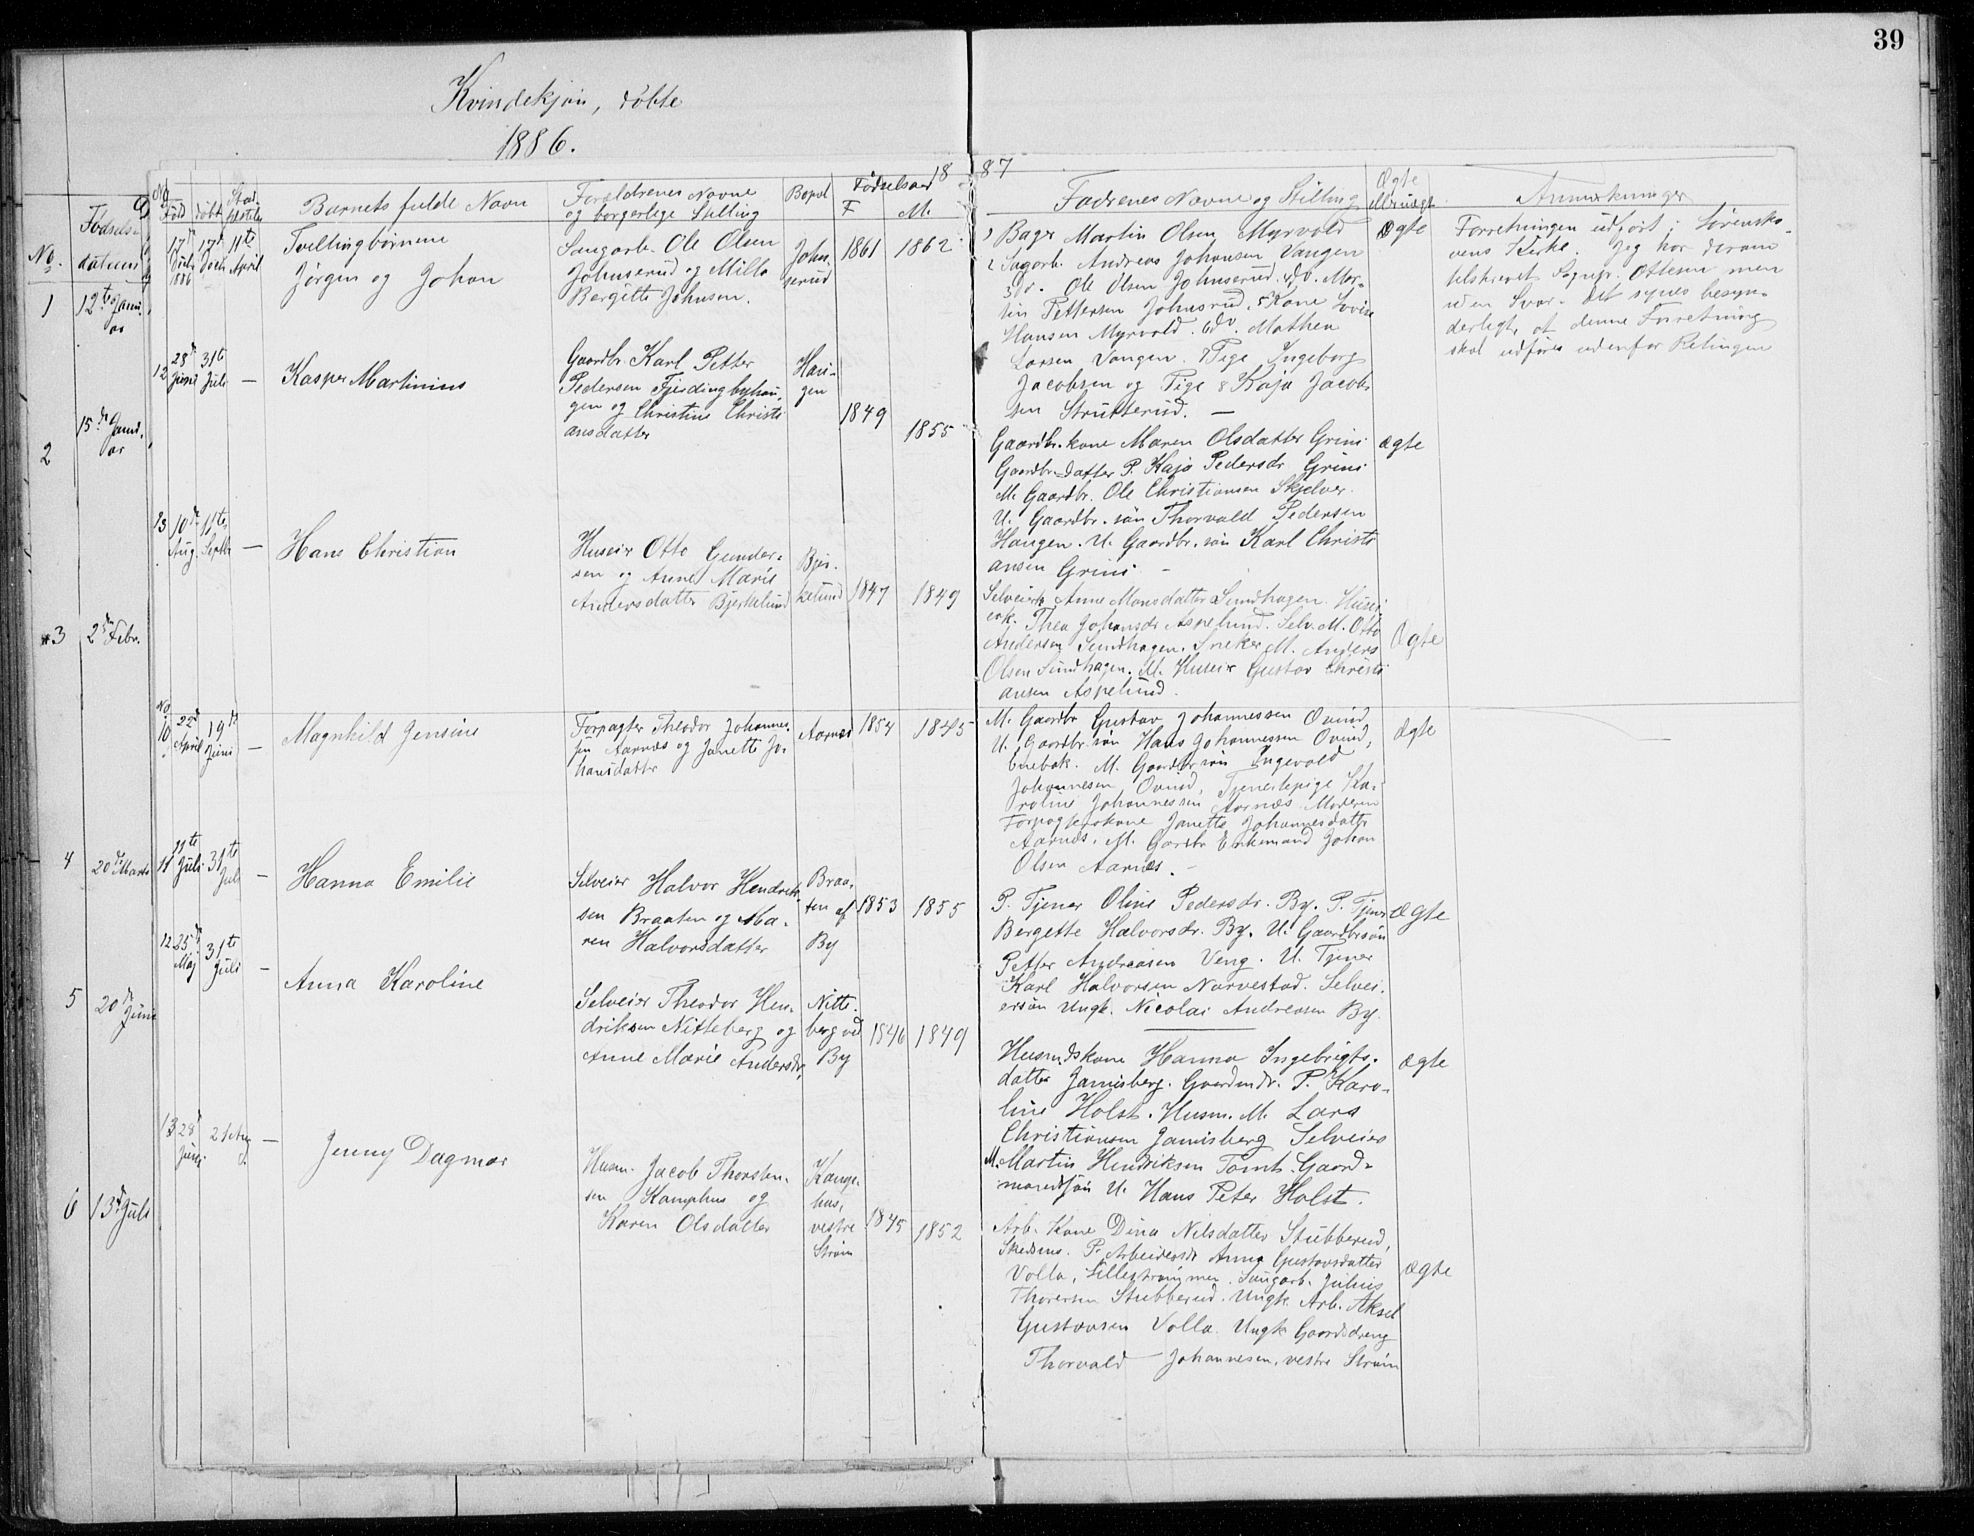 39
Kvindekjøn, døbte
1886.
1887
No. Fødselsdatum
No Født Døbt Stadfæstelse
Barnets fulde Navn
Forældrenes Navne
og borgerlige Stilling
Bopæl
Fødselsaar
F M.
Fadrenes Navne og Stilling
Ægte
Anmærkninger
1 12te Januar
2 15de Januar
3 2den Febr.
4 20de Marts
5 20de Juni
6 13de Juli
17de Juli 1886
11te April
Tvillingbørnene
Jørgen og Johan
Saugarb. Ole Olsen
Johnserud og Milla
Bergitte Johnsen.
Johnserud
1861 1862
1 Bager Martin Olsen Myrvold
2 Sagarb. Andreas Johansen Vangen
3 do. Ole Olsen Johnserud, 4 do. Martin
Pettersen Johnsrud, 5 Kone Lovise
Hansen Myrvold. 6 do. Mathea
Larsen Vangen. 7 Pige Ingeborg
Jacobsen og Pige 8 Kaja Jacobsen
Strutterud. —
Ægte
Forretningen udført i Lørenskovens
Kirke. Jeg har derom
tilskrevet Sognepr. Ottesen men
uden Svar. Det synes besynderligt,
at denne Forretning
skal udføres udenfor Relingen
12 28de Juni 31te Juli —
Kasper Martinius
Gaardbr. Karl Petter
Pedersen Fjeldingbyhaugen
og Christine Christiansdatter
Haugen
1849 1855
Gaardbr. kone Maren Olsdatter Grini
Gaardbr. datter P. Kaja Pedersdr Grini
M. Gaardbr. Ole Christiansen Skjelver.
U. Gaardbr. søn Thorvald Pedersen
Haugen. U. Gaardbr. søn Karl Christiansen
Grini. —
Ægte
13 10de Aug. 11te Septb —
Hans Christian
Huseier Otto Gundersen
og Anne Marie
Andersdatter Bjerkelund
Bjerkelund
1847 1849
Selveierk. Anne Monsdatter Sundhagen. Huseierk.
Thea Johansdr Aspelund. Selv. M. Otto
Andersen Sundhagen. Sneker M. Anders
Olsen Sundhagen. M. Huseier Gustav Christiansen
Aspelund.
Ægte
No
10 22de April 19de Juni —
Magnhild Jensine
Forpagter Theodor Johannessen
Aarnæs og Janette Johansdatter
Aarnæs
1854 1845
M. Gaardbr Gustav Johannessen Ovind,
U. Gaardbr søn Hans Johannessen Ovind,
Enebak. M. Gaardbr søn Ingevald
Johannesen Ovind, Tjenestepige Karoline
Johannessen Aarnæs. Moderen
Forpagterkone Janette Johannesdatter
Aarnæs. M. Gardbr Enkemand Johan
Olsen Aarnæs. —
Ægte
11 11te Juli 31te Juli —
Hanna Emilie
Selveier Halvor Hendriksen
Braaten og Maren
Halvorsdatter
Braaten af
By
1853 1855
P. Tjener Oline Pedersdr. By. P. Tjener
Bergette Halvorsdr. By. U. Gaardbrsøn
Petter Andreasen Veng. U. Tjener
Karl Halvorsen Narvestad. Selveiersøn
Ungk. Nicolai Andreasen By.
Ægte
12 25de Maj 31te Juli —
Anna Karoline
Selveier Theodor Hendriksen
Nitteberg og
Anne Marie Andersdr,
Nitteberg ved
By
1846 1849
Husmdskone Hanna Ingebrigtsdatter
Jamisberg. Gaardmdr. P. Karoline
Holst. Husm. M. Lars
Christiansen Jamisberg Selveier
M. Martin Hendriksen Tomt. Gaardmandsøn
U. Hans Peter Holst.
Ægte
13 28de Juni 21 Aug. —
Jenny Dagmar
Husm. Jacob Thorstensen
Kamphus og
Karen Olsdatter
Kamphus,
vestre
Strøm
1845 1852
Arb. Kone Dina Nilsdatter Stubberud,
Skedsmo. P. Arbeidersdr Anna Gustavsdatter
Volla, Lillestrømmen. Saugarb. Julius
Thoresen Stubberud. Ungk. Arb. Aksel
Gustavsen Volla. Ungk Gaardsdreng
Thorvald Johannesen, vestre Strøm
Ægte